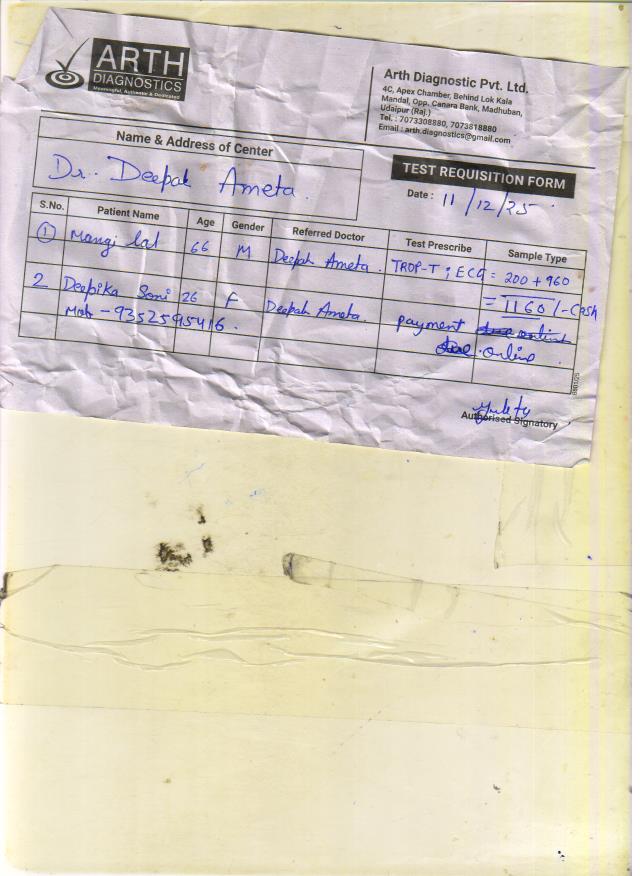 ARTH
DIAGNOSTICS
Meaningful, Authentic & Dedicated
Arth Diagnostic Pvt. Ltd.
4C, Apex Chamber, Behind Lok Kala
Mandal, Opp. Canara Bank, Madhuban,
Udaipur (Raj.)
Tel. : 7073308880, 7073818880
Email : arth.diagnostics@gmail.com
Name & Address of Center
Dr. Deepak Ameta.
TEST REQUISITION FORM
Date : 11/12/25
S.No. Patient Name Age Gender Referred Doctor Test Prescribe Sample Type
1 Mangi lal 66 M Deepak Ameta. TROP-T ; ECG = 200 + 960
= 1160/- Cash
2 Deepika Soni 26 F Deepak Ameta. payment
Mob - 9352595416. online.
Authorised Signatory